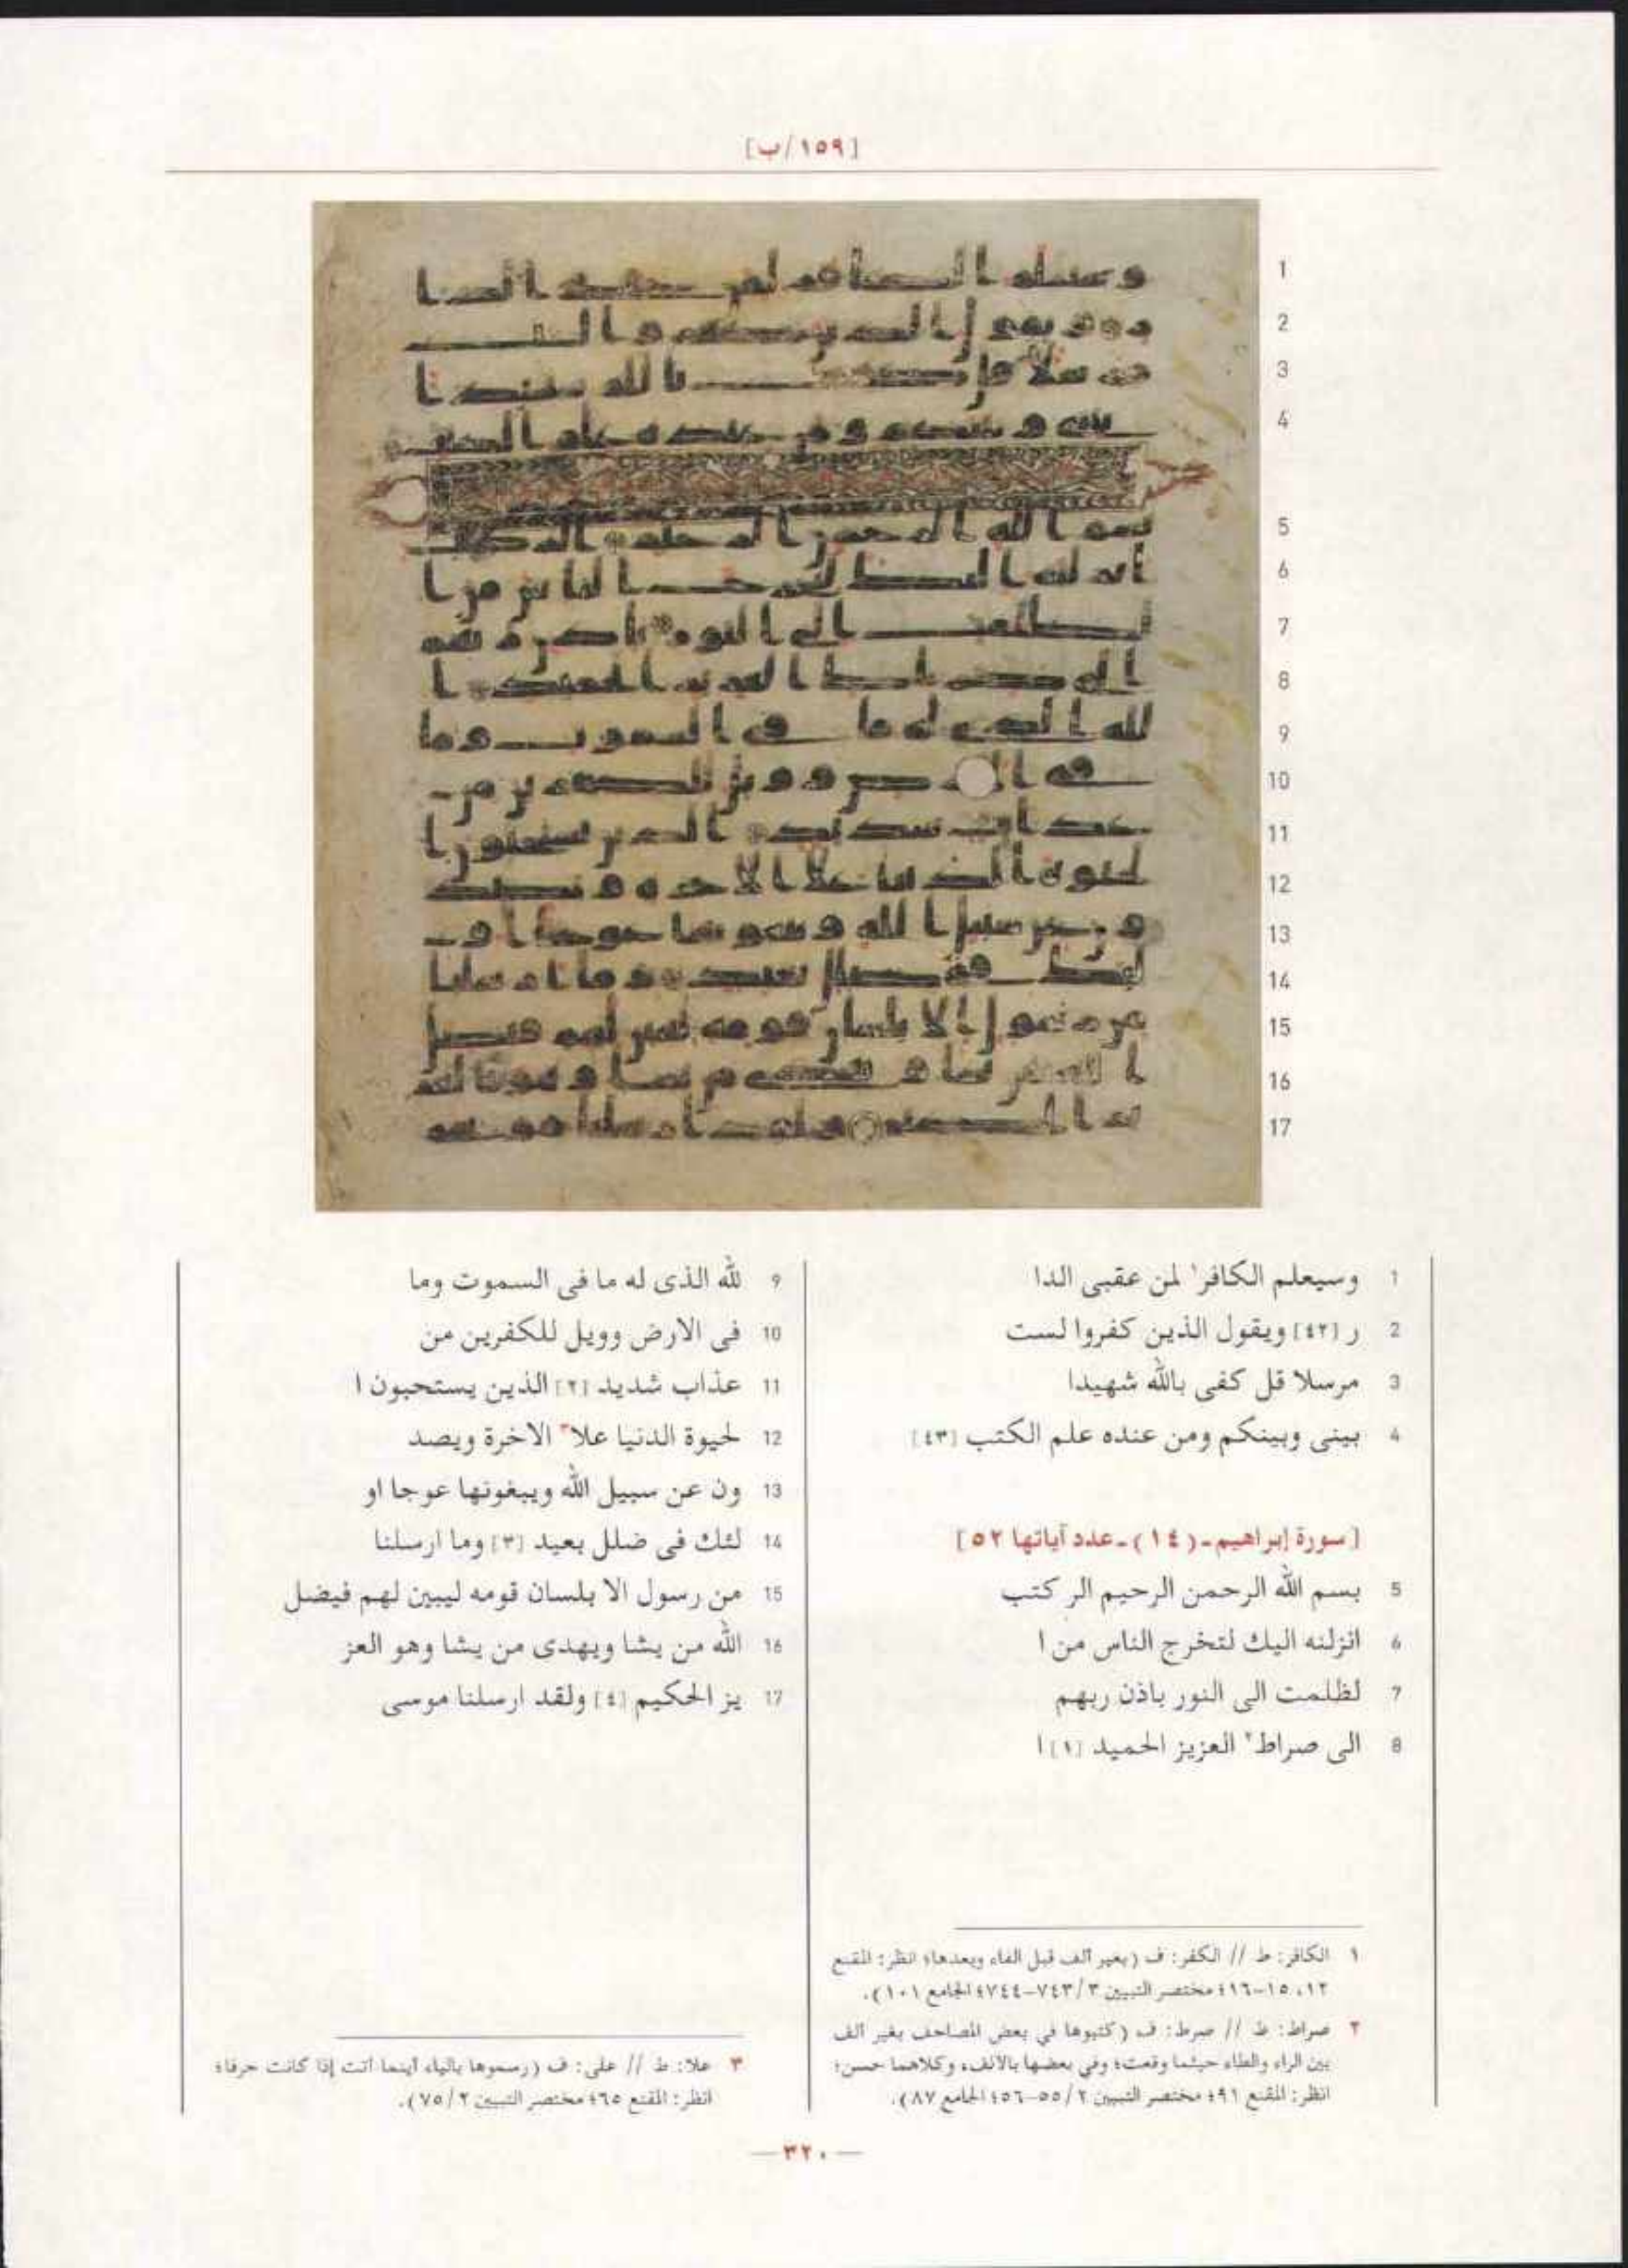 [١٥٩/ب]
1 وسيعلم الكافر١ لمن عقبى الدا
2 ر [٤٢] ويقول الذين كفروا لست
3 مرسلا قل كفى بالله شهيدا
4 بينى وبينكم ومن عنده علم الكتب [٤٣]
[سورة إبراهيم-(١٤)-عدد آياتها ٥٢]
5 بسم الله الرحمن الرحيم الر كتب
6 انزلنه اليك لتخرج الناس من ا
7 لظلمت الى النور باذن ربهم
8 الى صراط٢ العزيز الحميد [١] ا
9 لله الذى له ما فى السموت وما
10 فى الارض وويل للكفرين من
11 عذاب شديد [٢] الذين يستحبون ا
12 لحيوة الدنيا علا٣ الاخرة ويصد
13 ون عن سبيل الله ويبغونها عوجا او
14 لئك فى ضلل بعيد [٣] وما ارسلنا
15 من رسول الا بلسان قومه ليبين لهم فيضل
16 الله من يشا ويهدى من يشا وهو العز
17 يز الحكيم [٤] ولقد ارسلنا موسى
١ الكافر: ط // الكفر: ف (بغير ألف قبل الفاء وبعدها؛ انظر: المقنع
١٢، ١٥-١٦؛ مختصر التبيين ٧٤٣/٣-٧٤٤؛ الجامع ١٠١).
٢ صراط: ط // صرط: ف (كتبوها في بعض المصاحف بغير ألف
بين الراء والطاء حيثما وقعت؛ وفي بعضها بالألف، وكلاهما حسن؛
انظر: المقنع ٩١؛ مختصر التبيين ٥٥/٢-٥٦؛ الجامع ٨٧).
٣ علا: ط // على: ف (رسموها بالياء أينما أتت إذا كانت حرفا؛
انظر: المقنع ٦٥؛ مختصر التبيين ٧٥/٢).
— ٣٢٠ —